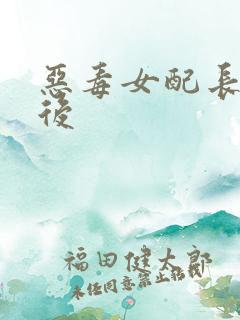 惡毒女配長
後
福田健太郎
未任同意禁止轉載